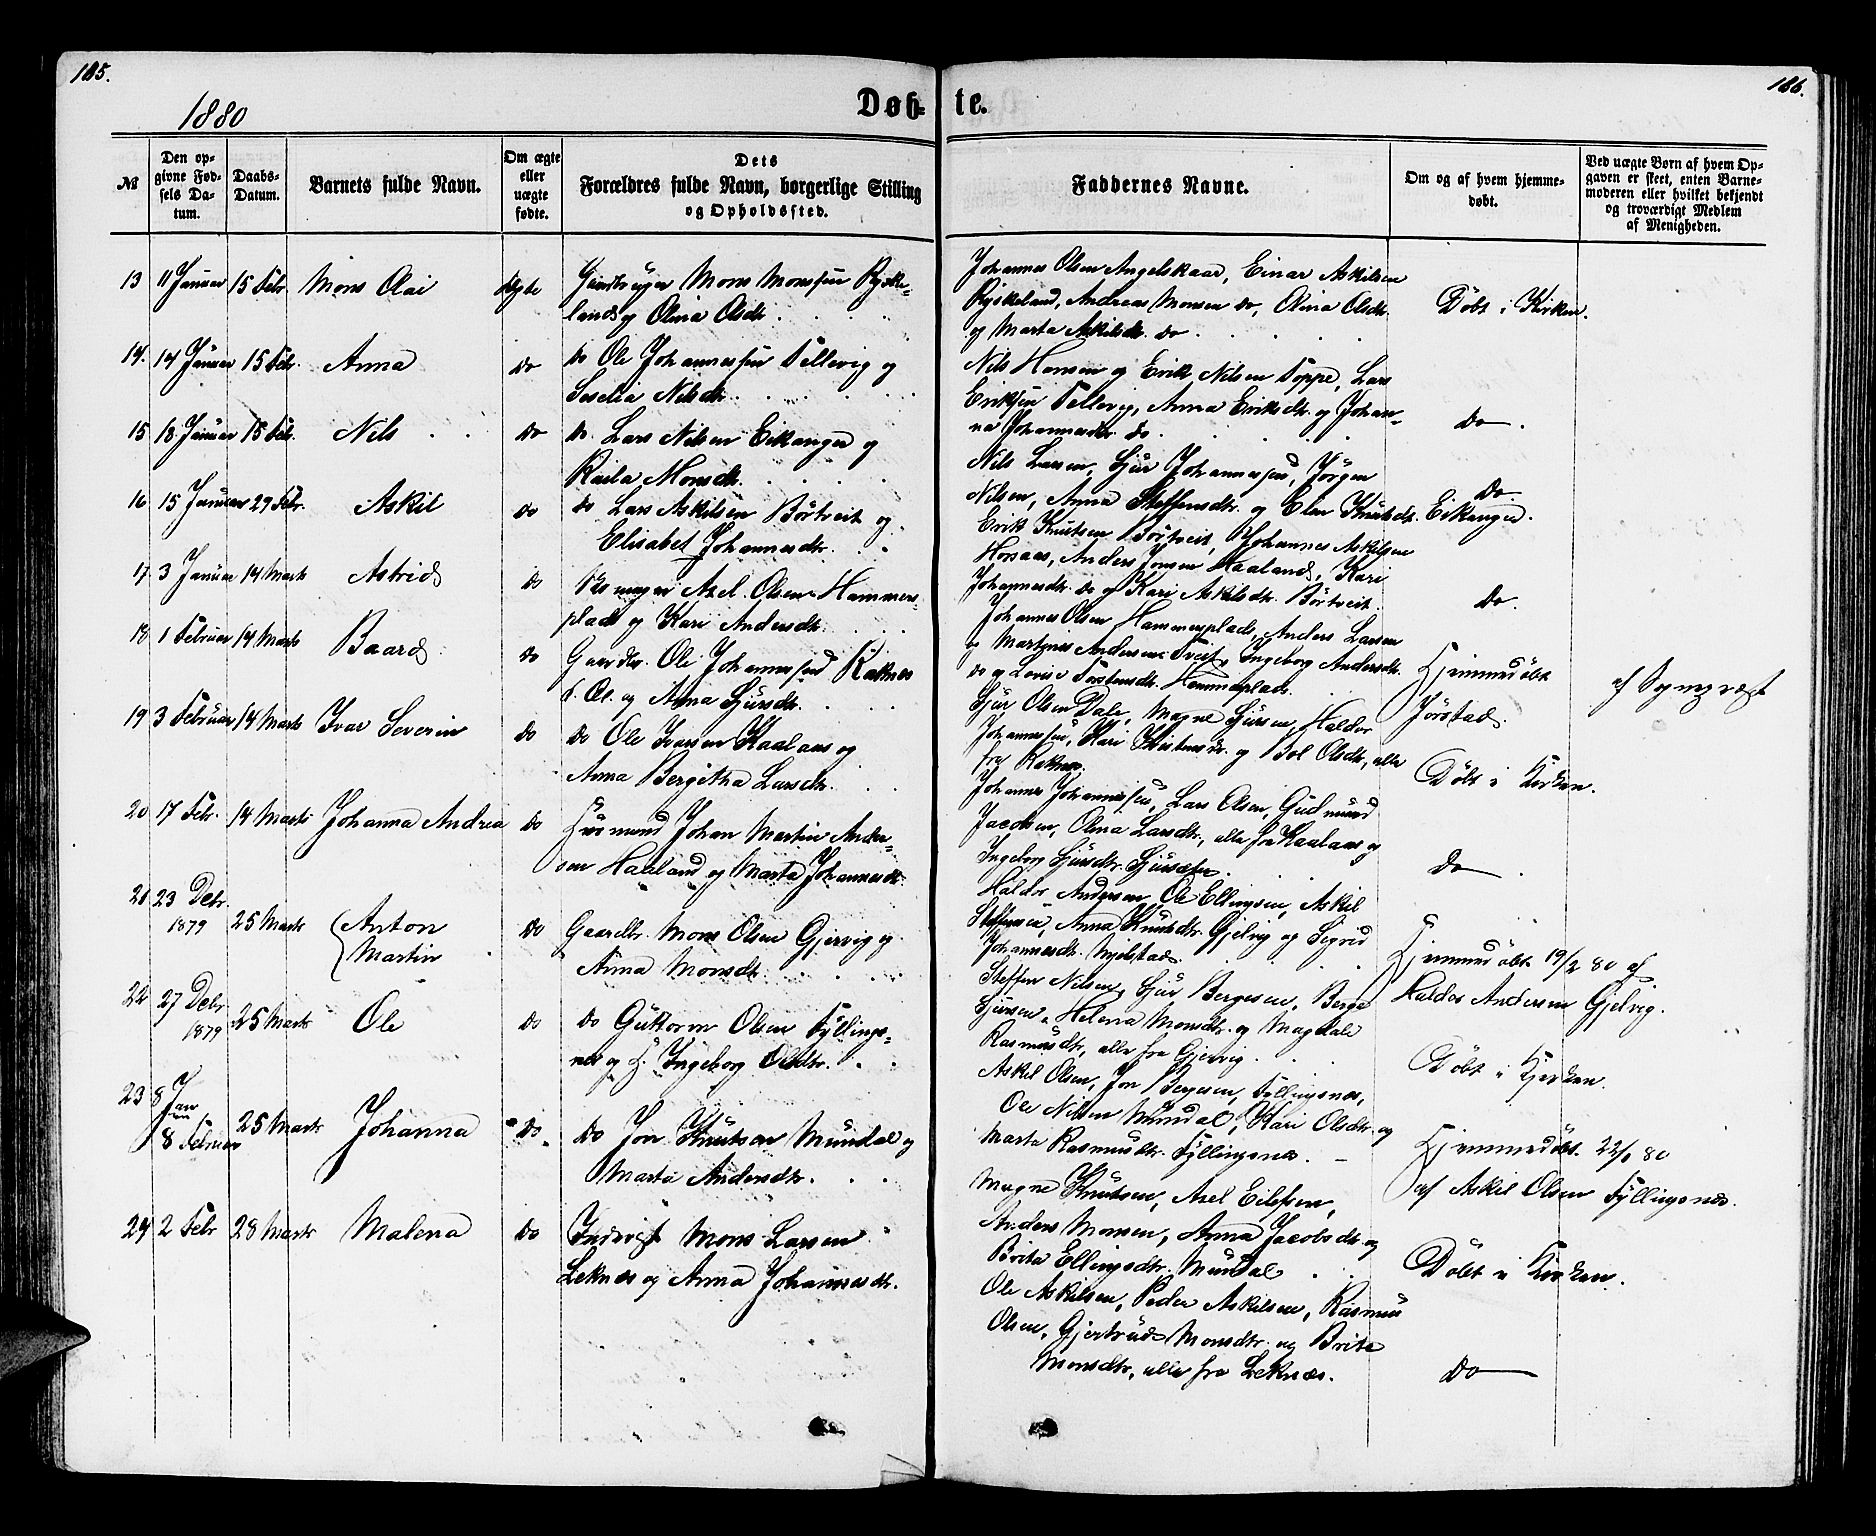 185.
186.
1880
Døb-
te.
№
Den op-
givne Fød-
sels Da-
tum.
Daabs-
Datum.
Barnets fulde Navn.
Om ægte
eller
uægte
fødte.
Dets
Forældres fulde Navn, borgerlige Stilling
og Opholdssted.
Faddernes Navne.
Om og af hvem hjemme-
døbt.
Ved uægte Børn af hvem Op-
gaven er skeet, enten Barne-
moderen eller hvilket bekjendt
og troværdigt Medlem
af Menigheden.
13 11 Januar 15 Febr. Mons Olai ægte Mons Monssen Ryske-
land og Olina Olsdr.
Johannes Olsen Angelskaar, Einar Askilsen
Ryskeland, Andreas Monsen do, Olina Olsdr.
og Marta Askilsdr. do
Døbt i Kirken.
14. 14 Januar 15 Febr. Anna do do Ole Johannessen Tellevig og
Seselia Nilsdr.
Nils Hansen og Erik Nilsen Toppe, Lars
Eriksen Tellevig, Anna Eriksdr. og Johan-
na Johannesdr. do
do.
15 18 Januar 15 Febr. Nils do do. Lars Nilsen Eikanger og
Raila Monsdr.
Nils Larsen, Sjur Johannessen, Jörgen
Nilsen, Anna Steffensdr. og Elen Knutsdr. Eikanger.
do
16 15 Januar 29 Febr. Askil do do Lars Askilsen Börtveit og
Elisabet Johannesdr.
Erik Knutsen Börtveit, Johannes Askilsen
Hosaas, Anders Jonsen Haaland, Kari
Johannesdr. do og Kari Askilsdr. Börtveit.
do.
17 3 Januar 14 Marts Astrid do Axel Olsen Hammers-
plads og Kari Andersdr.
Johannes Olsen Hammersplads, Anders Larsen
og Martines Andersen Tveit, Ingeborg Andersdr.
do og Lovise Torstensdr. Hammersplads.
Hjemmedøbt
af
Jörstad.
18 1 Februar 14 Marts Baard do Gaardbr. Ole Johannessen Raknes
og Anna Sjursdr.
Sjur Olsen Dale, Magne Sjursen, Haldor
Johannessen, Kari Kristensdr. og Bol Olsdr., alle
fra Raknes.
Døbt i Kirken.
19 3 Februar 14 Marts Ivar Severin do do Ole Ivarsen Kaalaas og
Anna Bergitha Larsdr.
Johannes Johannessen, Lars Olsen, Gudmund
Jacobsen, Olina Larsdr., alle fra Kaalaas og
Ingeborg Sjursdr. Sjursæter.
do
20 17 Febr. 14 Marts Johanna Andrea do Huusmand Johan Martin Ander-
sen Haaland og Marta Johannesdr.
Haldor Andersen, Ole Ellingsen, Askil
Steffensen, Anna Knutsdr. Gjelvig og Sigrid
Johannesdr. Mjelstad.
Hjemmedøbt 19/2 80 af
Haldor Andersen Gjelvig.
21 23 Debr.
1879 25 Marts Anton
Martin do Gaardbr. Mons Olsen Gjervig og
Anna Monsdr.
Steffen Nilsen, Sjur Bergesen, Berge
Sjursen, Helena Monsdr. og Magdale
Rasmusdr., alle fra Gjervig.
Døbt i Kirken.
22 27 Debr
1879 25 Marts Ole do do Gutorm Olsen Fyllings-
nes og H. Ingeborg Olsdtr.
Askil Olsen, Jon Bergesen, Fyllingsnes,
Ole Nilsen Mundal, Kari Olsdr. og
Marta Rasmusdr. Fyllingsnes.
Hjemmedøbt 22/1 80
af Askil Olsen Fyllingsnæs.
23 8 Jan
8 Februar 25 Marts Johanna do. do Jon Knutsen Mundal og
Marta Andersdr.
Magne Knutsen, Axel Eilefsen,
Anders Monsen, Anna Jacobsdr. og
Brita Ellingsdr. Mundal
Døbt i Kirken.
24 2 Febr 28 Marts Malena do Mons Larsen
Leknæs og Anna Johannesdr.
Ole Askilsen, Peder Askilsen, Rasmus
Olsen, Gjertrud Monsdtr. og Brita
Monsdtr, alle fra Leknæs.
do